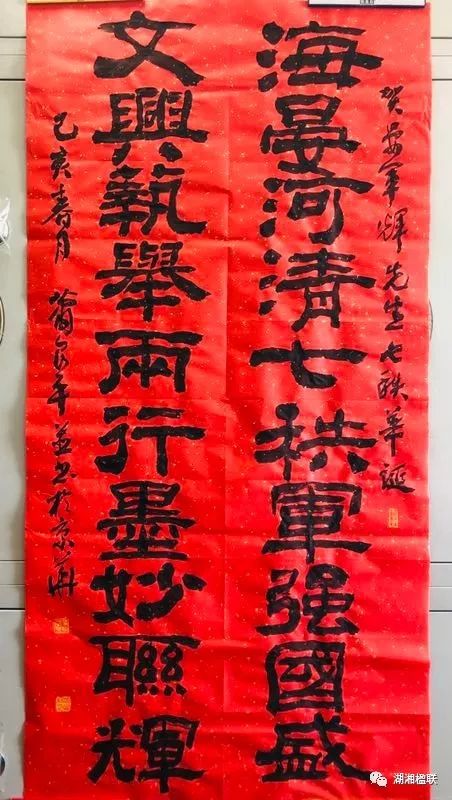 贺安军輝先生七秩華誕
海晏河清七秩軍强國盛
文興蓺舉兩行墨妙聯輝
己亥春月 平並书於京華
湖湘楹联